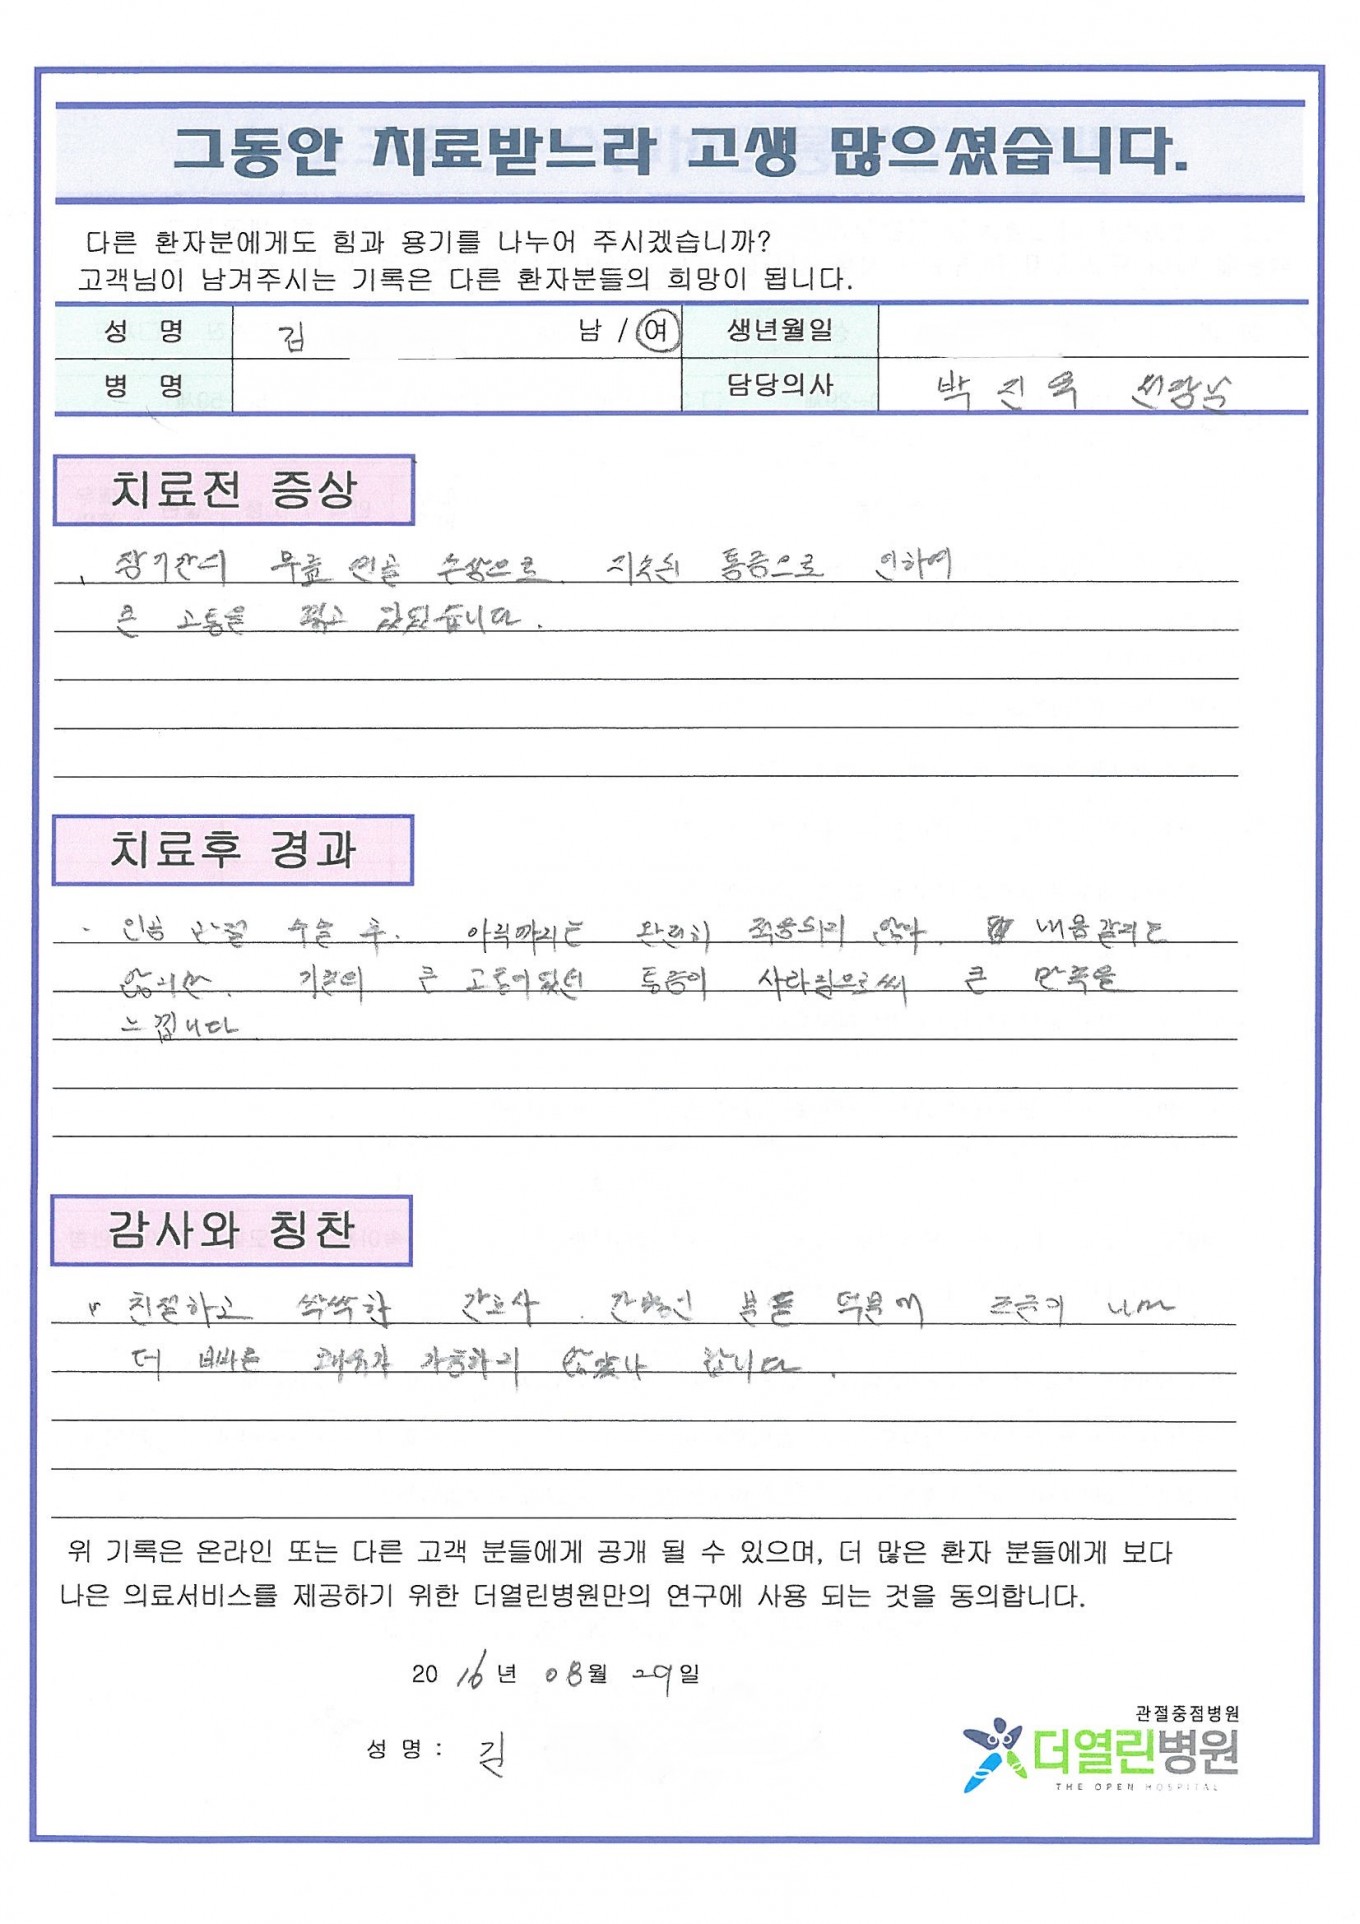 그동안 치료받느라 고생 많으셨습니다.
다른 환자분에게도 힘과 용기를 나누어 주시겠습니까?
고객님이 남겨주시는 기록은 다른 환자분들의 희망이 됩니다.
성 명 김 남 / 여 생년월일
병 명 담당의사 박진욱 원장님
치료전 증상
장기간의 무릎 연골 손상으로. 지속된 통증으로 인하여
큰 고통을 겪고 있었습니다.
치료후 경과
인공 관절 수술 후. 아직까지는 완전히 적응되지 않아. 내몸같지는
않지만. 기존의 큰 고통이었던 통증이 사라짐으로써 큰 만족을
느낍니다
감사와 칭찬
친절하고 싹싹한 간호사. 간병인 분들 덕분에 조금이 나마
더 빠른 쾌유가 가능하지 않았나 합니다.
위 기록은 온라인 또는 다른 고객 분들에게 공개 될 수 있으며, 더 많은 환자 분들에게 보다
나은 의료서비스를 제공하기 위한 더열린병원만의 연구에 사용 되는 것을 동의합니다.
2016년 08월 29일
성 명 : 김
관절중점병원
더열린병원
THE OPEN HOSPITAL